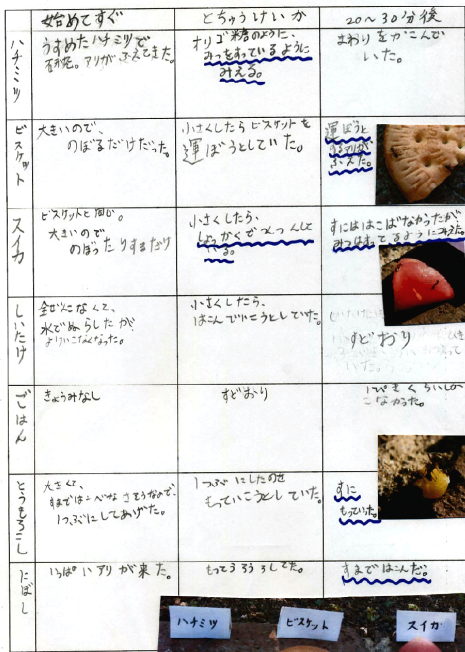 始めてすぐ
とちゅうけいか
20〜30分後
ハチミツ
うすめたハチミツで
アリがふえてきた。
オリゴ糖のように、
みつをすっているように
みえる。
まわりをかこんで
いた。
ビスケット
大きいので、
のぼるだけだった。
小さくしたらビスケットを
運ぼうとしていた。
運ぼうと
するアリが
ふえた。
スイカ
ビスケットと同じ。
大きいので
のぼったりするだけ
小さくしたら、
しょっかくでつんつんして
いる。
すにははこばなかったが
みつはすってるようにみえた。
しいたけ
全ぜんこなくて、
水でぬらしたが、
よけいこなくなった。
小さくしたら、
はこんでいこうとしていた。
すどおり
ごはん
きょうみなし
すどおり
1ぴきくらいしか
こなかった。
とうもろこし
大きくて、
すまではこべなさそうなので、
1つぶにしてあげた。
1つぶにしたのを
もっていこうとしていた。
すに
もっていった。
にぼし
いっぱいアリが来た。
もってうろうろしてた。
すまではこんだ。
ハチミツ
ビスケット
スイカ